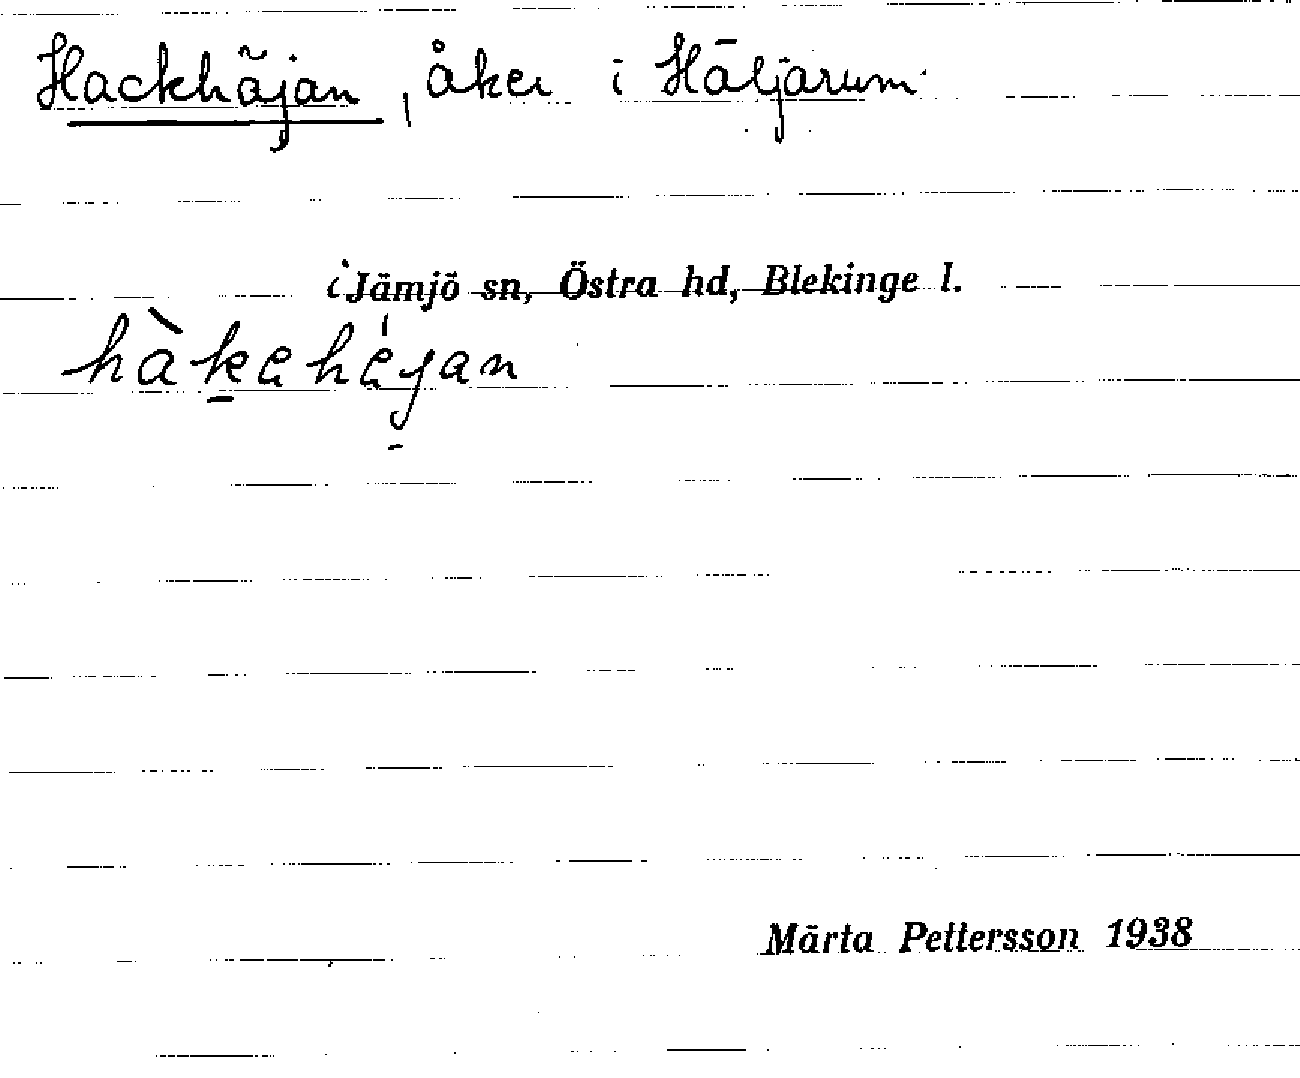 Hackhäjan, åker i Häljarum.
i Jämjö sn, Östra hd, Blekinge l.
Märta Pettersson 1938